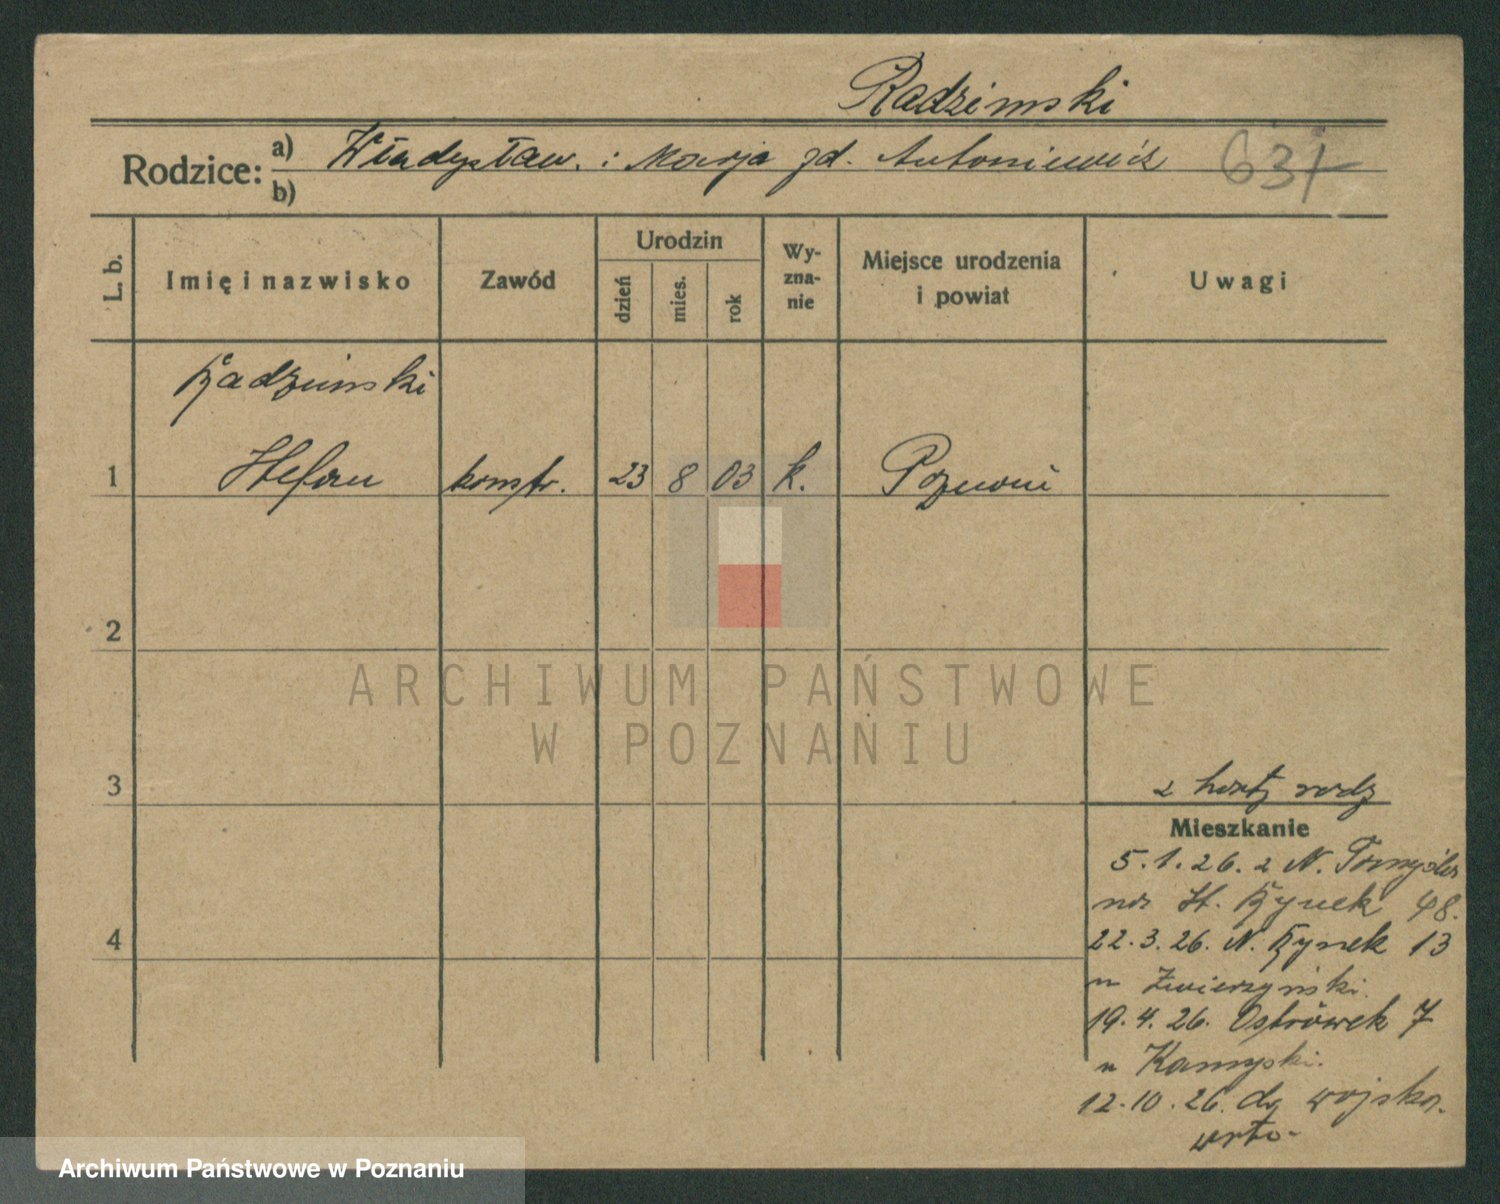 Radzimski
Rodzice: a) Władysław. i Marja zd. Antoniewicz 631
b)
L. b. Imię i nazwisko Zawód Urodzin dzień mies. rok Wyznanie Miejsce urodzenia i powiat Uwagi
Radzimski
1 Stefan konstr. 23 8 03 k. Poznań
2
3
z karty rodz
Mieszkanie
5.1.26. z N. Tomyśla
na St. Rynek 48.
4
22.3.26. N. Rynek 13
u Zwierzyński.
19.4.26. Ostrówek 7
u Kamyski.
12.10.26. do wojska.
ARCHIWUM PAŃSTWOWE
W POZNANIU
Archiwum Państwowe w Poznaniu